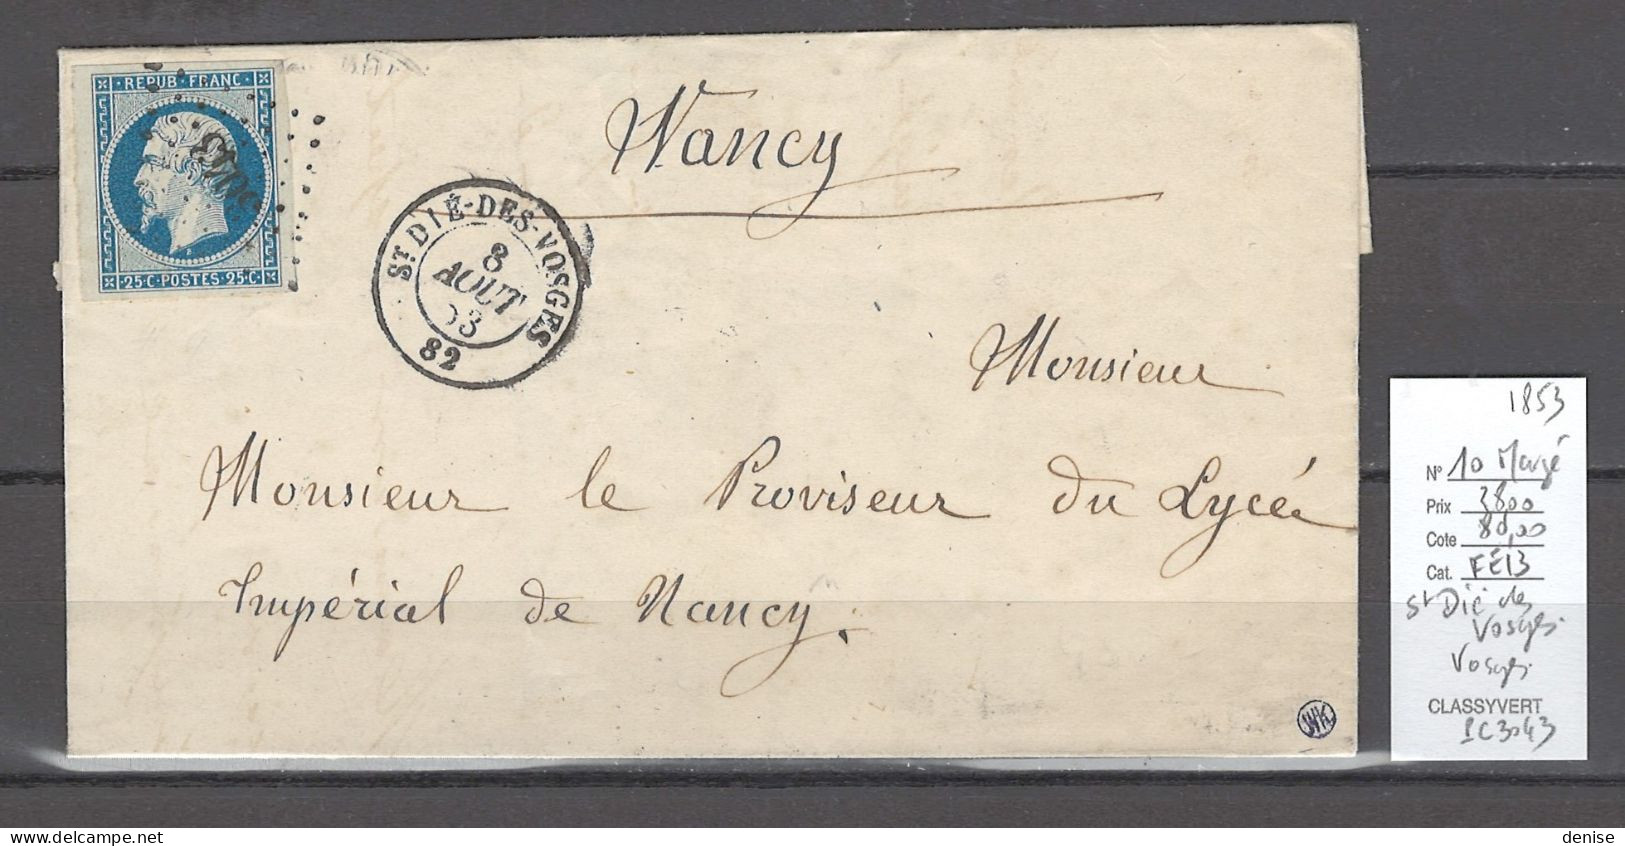 REPUB·FRANC·
3043
25·C·POSTES·25·C·
Nancy
ST DIÉ-DES-VOSGES
8
AOUT
53
82
Monsieur
Monsieur le Proviseur du Lycée
Impérial de Nancy.
WK
1853
N° 10 Margé
Prix 3800
Cote 80,00
Cat. FE13
St Dié des
Vosges.
Vosges.
CLASSYVERT
PC3043
denise